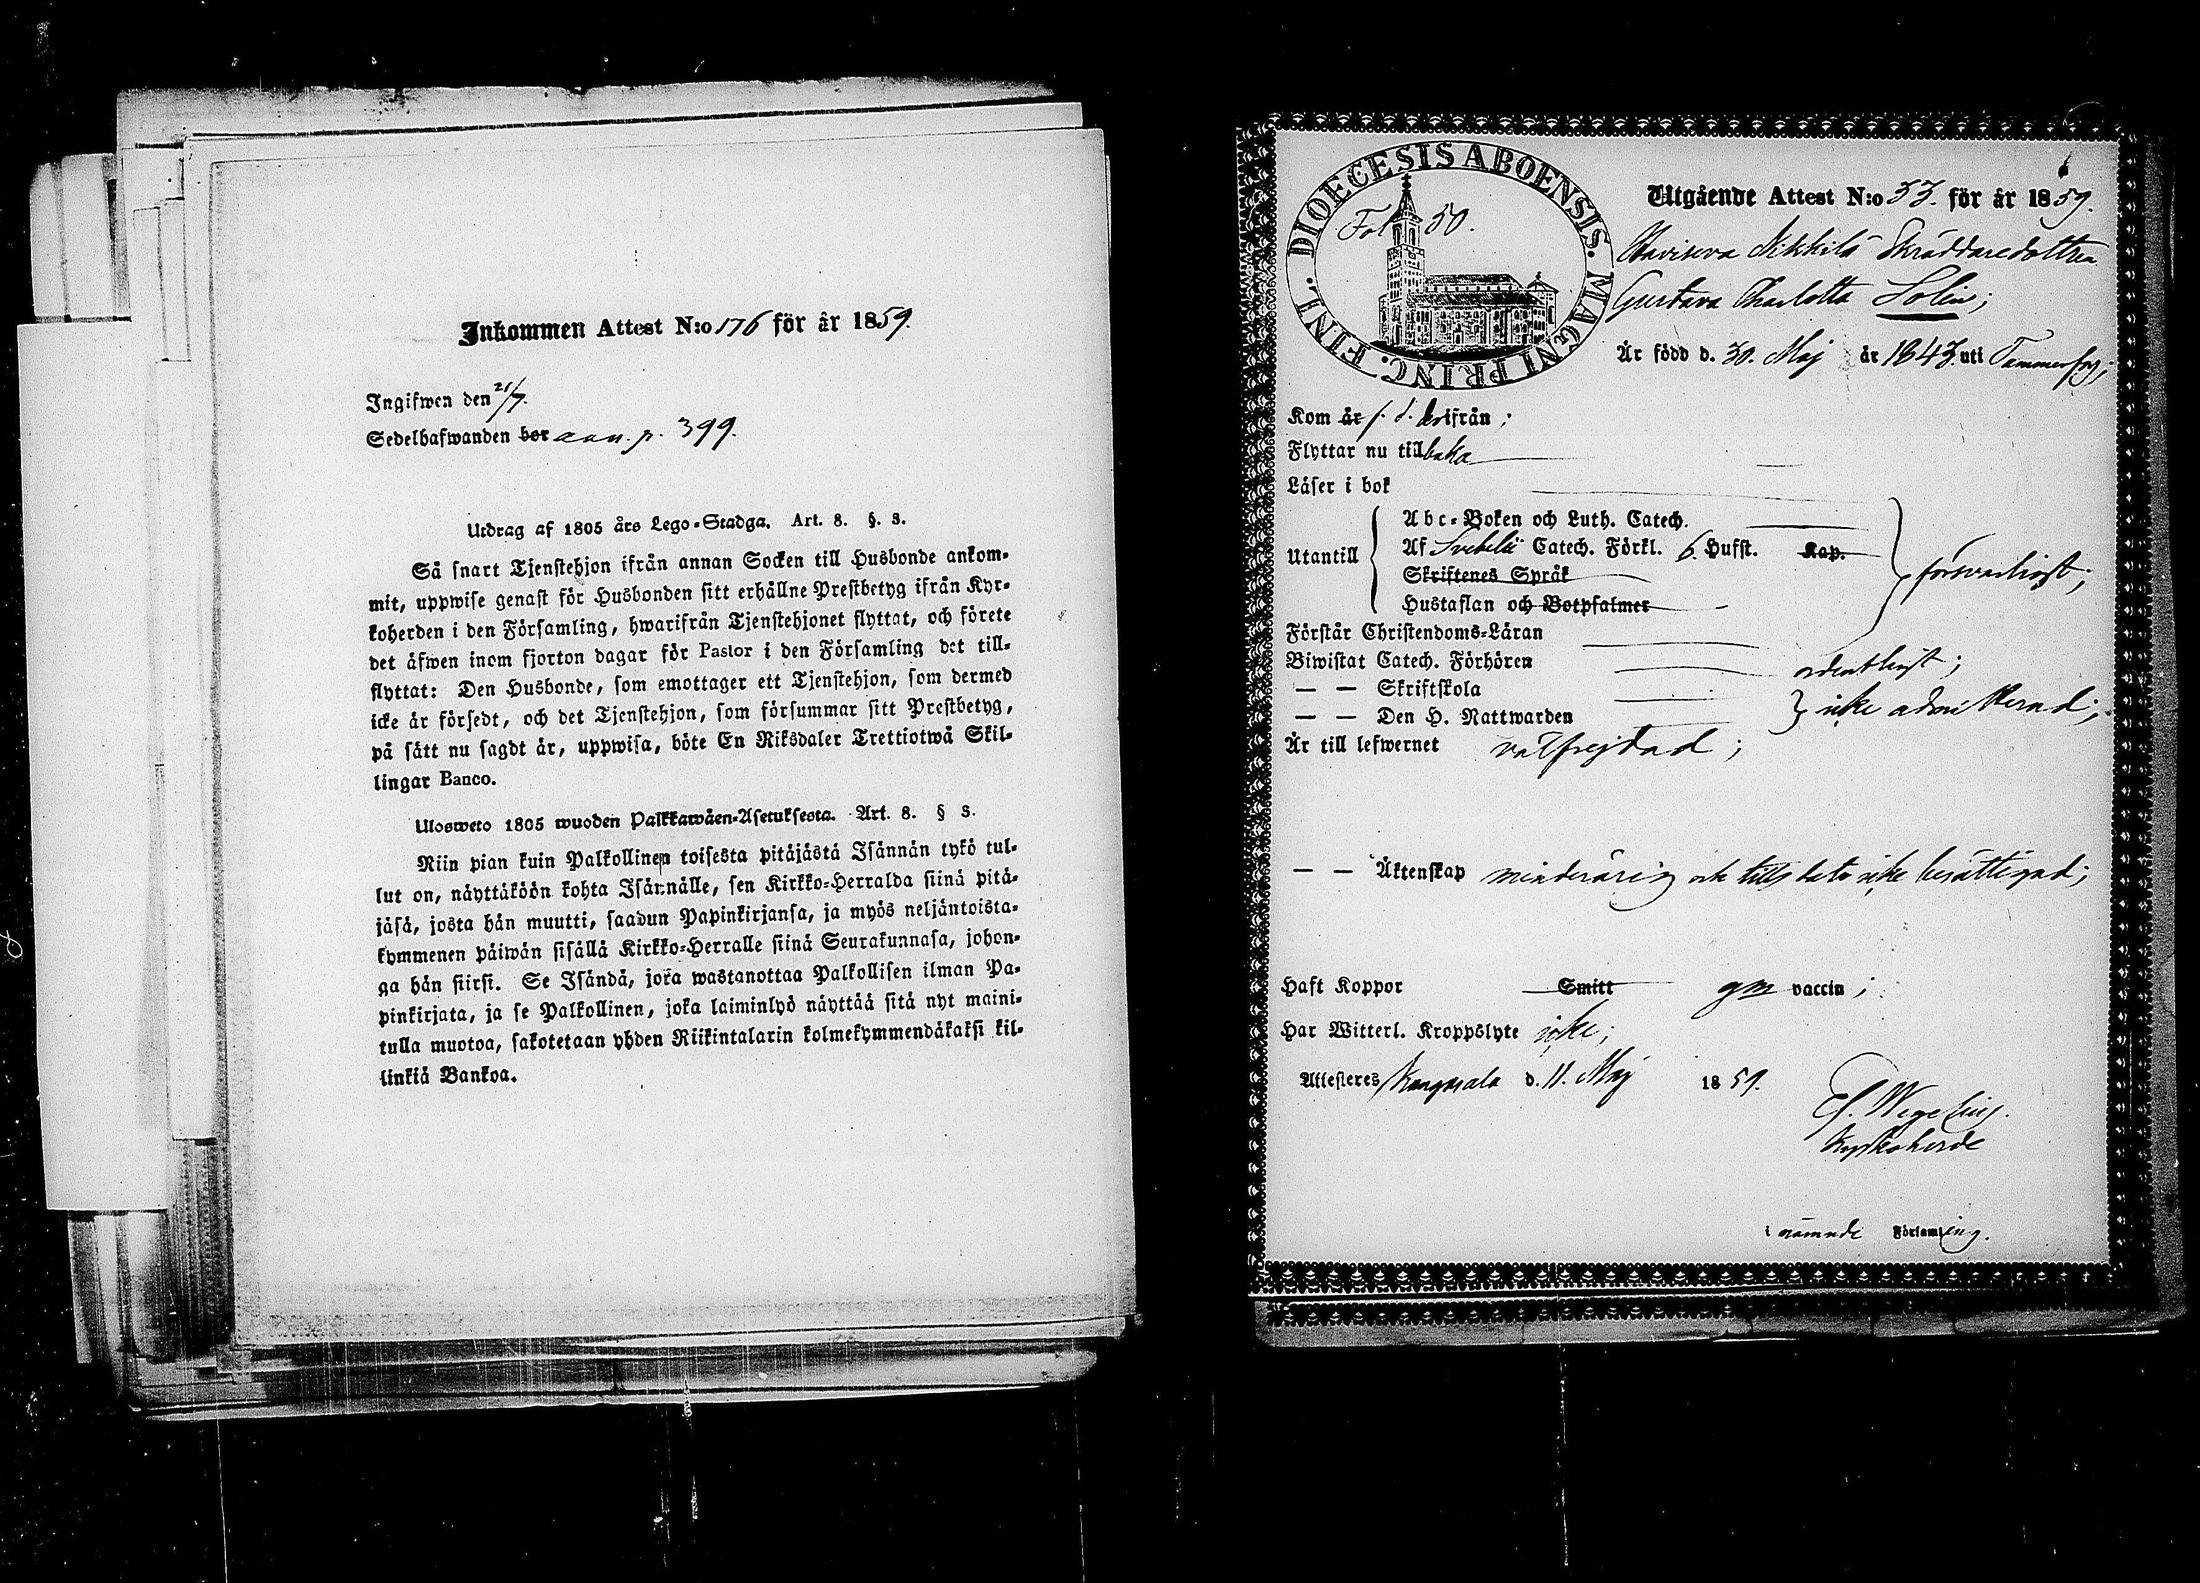 Inkommen Attest N:o 176 för år 1859.
Ingifwen den 21/7.
Sedelhafwanden bor ann. p. 399.
Utdrag af 1805 års Lego-Stadga. Art. 8. §. 3.
Så snart Tjenstehjon ifrån annan Socken till Husbonde ankom-
mit, uppwise genast för Husbonden sitt erhållne Prestbetyg ifrån Kyr-
koherden i den Församling, hwarifrån Tjenstehjonet flyttat, och förete
det äfwen inom fjorton dagar för Pastor i den Församling det till-
flyttat: Den Husbonde, som emottager ett Tjenstehjon, som dermed
icke är försedt, och det Tjenstehjon, som försummar sitt Prestbetyg,
på sätt nu sagdt är, uppwisa, böte En Riksdaler Trettiotwå Skil-
lingar Banco.
Ulosweto 1805 wuoden Palkkawäen-Asetuksesta. Art. 8. § 3.
Niin pian kuin Palkollinen toisesta pitäjästä Isännän tykö tul-
lut on, näyttäköön kohta Isännälle, sen Kirkko-Herralda siinä pitä-
jäsä, josta hän muutti, saadun Papinkirjansa, ja myös neljäntoista-
kymmenen päiwän sisällä Kirkko-Herralle siinä Seurakunnasa, johon-
ga hän siirsi. Se Isändä, joka wastanottaa Palkollisen ilman Pa-
pinkirjata, ja se Palkollinen, joka laiminlyö näyttää sitä nyt maini-
tulla muotoa, sakotetaan yhden Riikintalarin kolmekymmendäkaksi kil-
linkiä Bankoa.
DIOECESIS ABOENSIS. MAGNI PRINC. FINL.
Fol 50.
Utgående Attest N:o 33. för år 1859.
Nikkilä Skräddaredottren
Gustava Charlotta Solin;
Är född d. 30. Maj år 1843 uti Tammerfors;
Kom år f. å. derifrån;
Flyttar nu tillbaka
Läser i bok
Utantill
Abc-Boken och Luth. Catech.
Af Svebelii Catech. Förkl. 6 Hufst. Kap.
Skriftenes Språk
Hustaflan och Botpsalmer
försvarligt;
Förstår Christendoms-Läran
Biwistat Catech. Förhören ordentligt;
— — Skriftskola
— — Den H. Nattwarden
icke admitterad;
Är till lefwernet välfrejdad;
— — Äktenskap minderårig och tills dato icke besättigad;
Haft Koppor Smitt gm vaccin;
Har Witterl. Kroppslyte icke;
Attesteres Kangasala d. 11. Maj 1859.
Wegelius.
Kyrkoherde
i nämnde Församling.